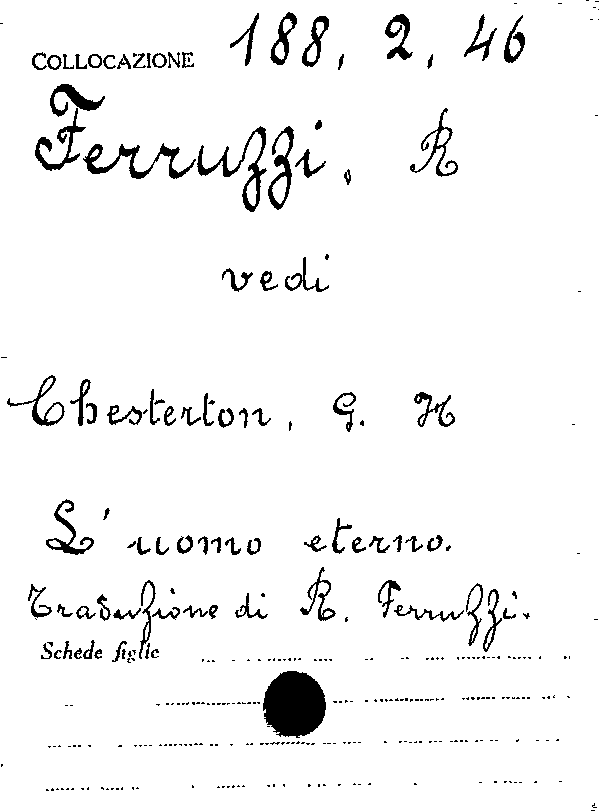 COLLOCAZIONE 188, 2, 46
Ferruzzi, R
vedi
Chesterton, G. H
L'uomo eterno.
Traduzione di R. Ferruzzi.
Schede figlie